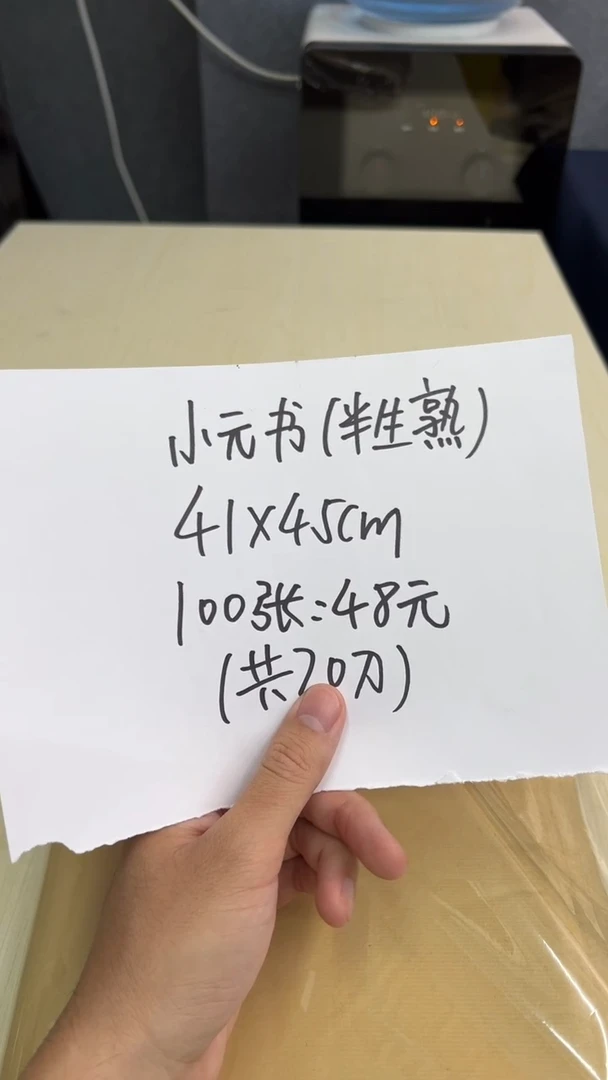 小元书(半生熟)
41×45cm
100张:48元
(共20刀)